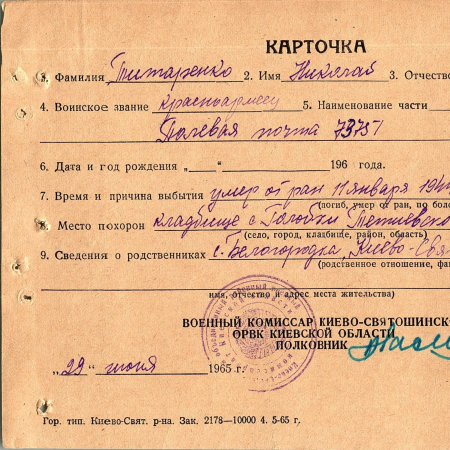 КАРТОЧКА
1. Фамилия Титаренко 2. Имя Николай 3. Отчество
4. Воинское звание красноармеец 5. Наименование части
Полевая почта 73751
6. Дата и год рождения „ “ 196 года.
7. Время и причина выбытия умер от ран 11 января 194
(погиб, умер от ран, пр
8. Место похорон кладбище с.
(село, город, кладбище, район, область)
9. Сведения о родственниках с. Белогородка, Киево-Свят
(родственное отношение, фа
имя, отчество и адрес места жительства)
ВОЕННЫЙ КОМИССАР КИЕВО-СВЯТОШИНСК
ОРВК КИЕВСКОЙ ОБЛАСТИ
ПОЛКОВНИК
„29“ июня 1965 г.
Гор. тип. Киево-Свят. р-на. Зак. 2178—10000 4. 5-65 г.